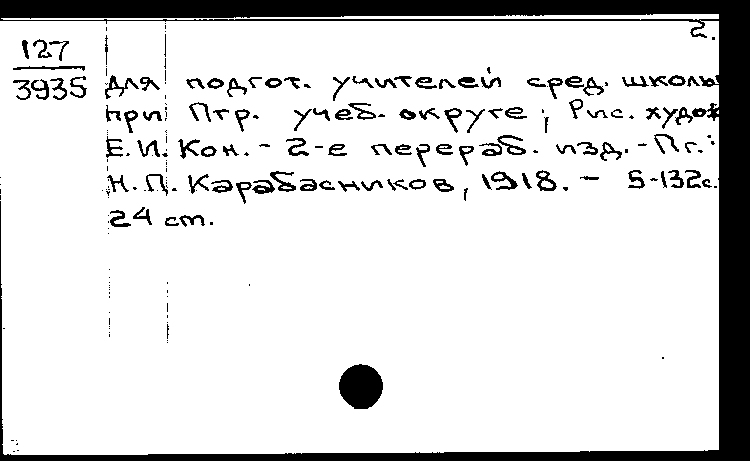 2.
127
3935
для подгот. учителей сред. школы
при Птр. учеб. округе; Рис. худож
Е. И. Кон. - 2-е перераб. изд. - Пг.:
Н. П. Карабасников, 1918. - 5-132с.
24 см.